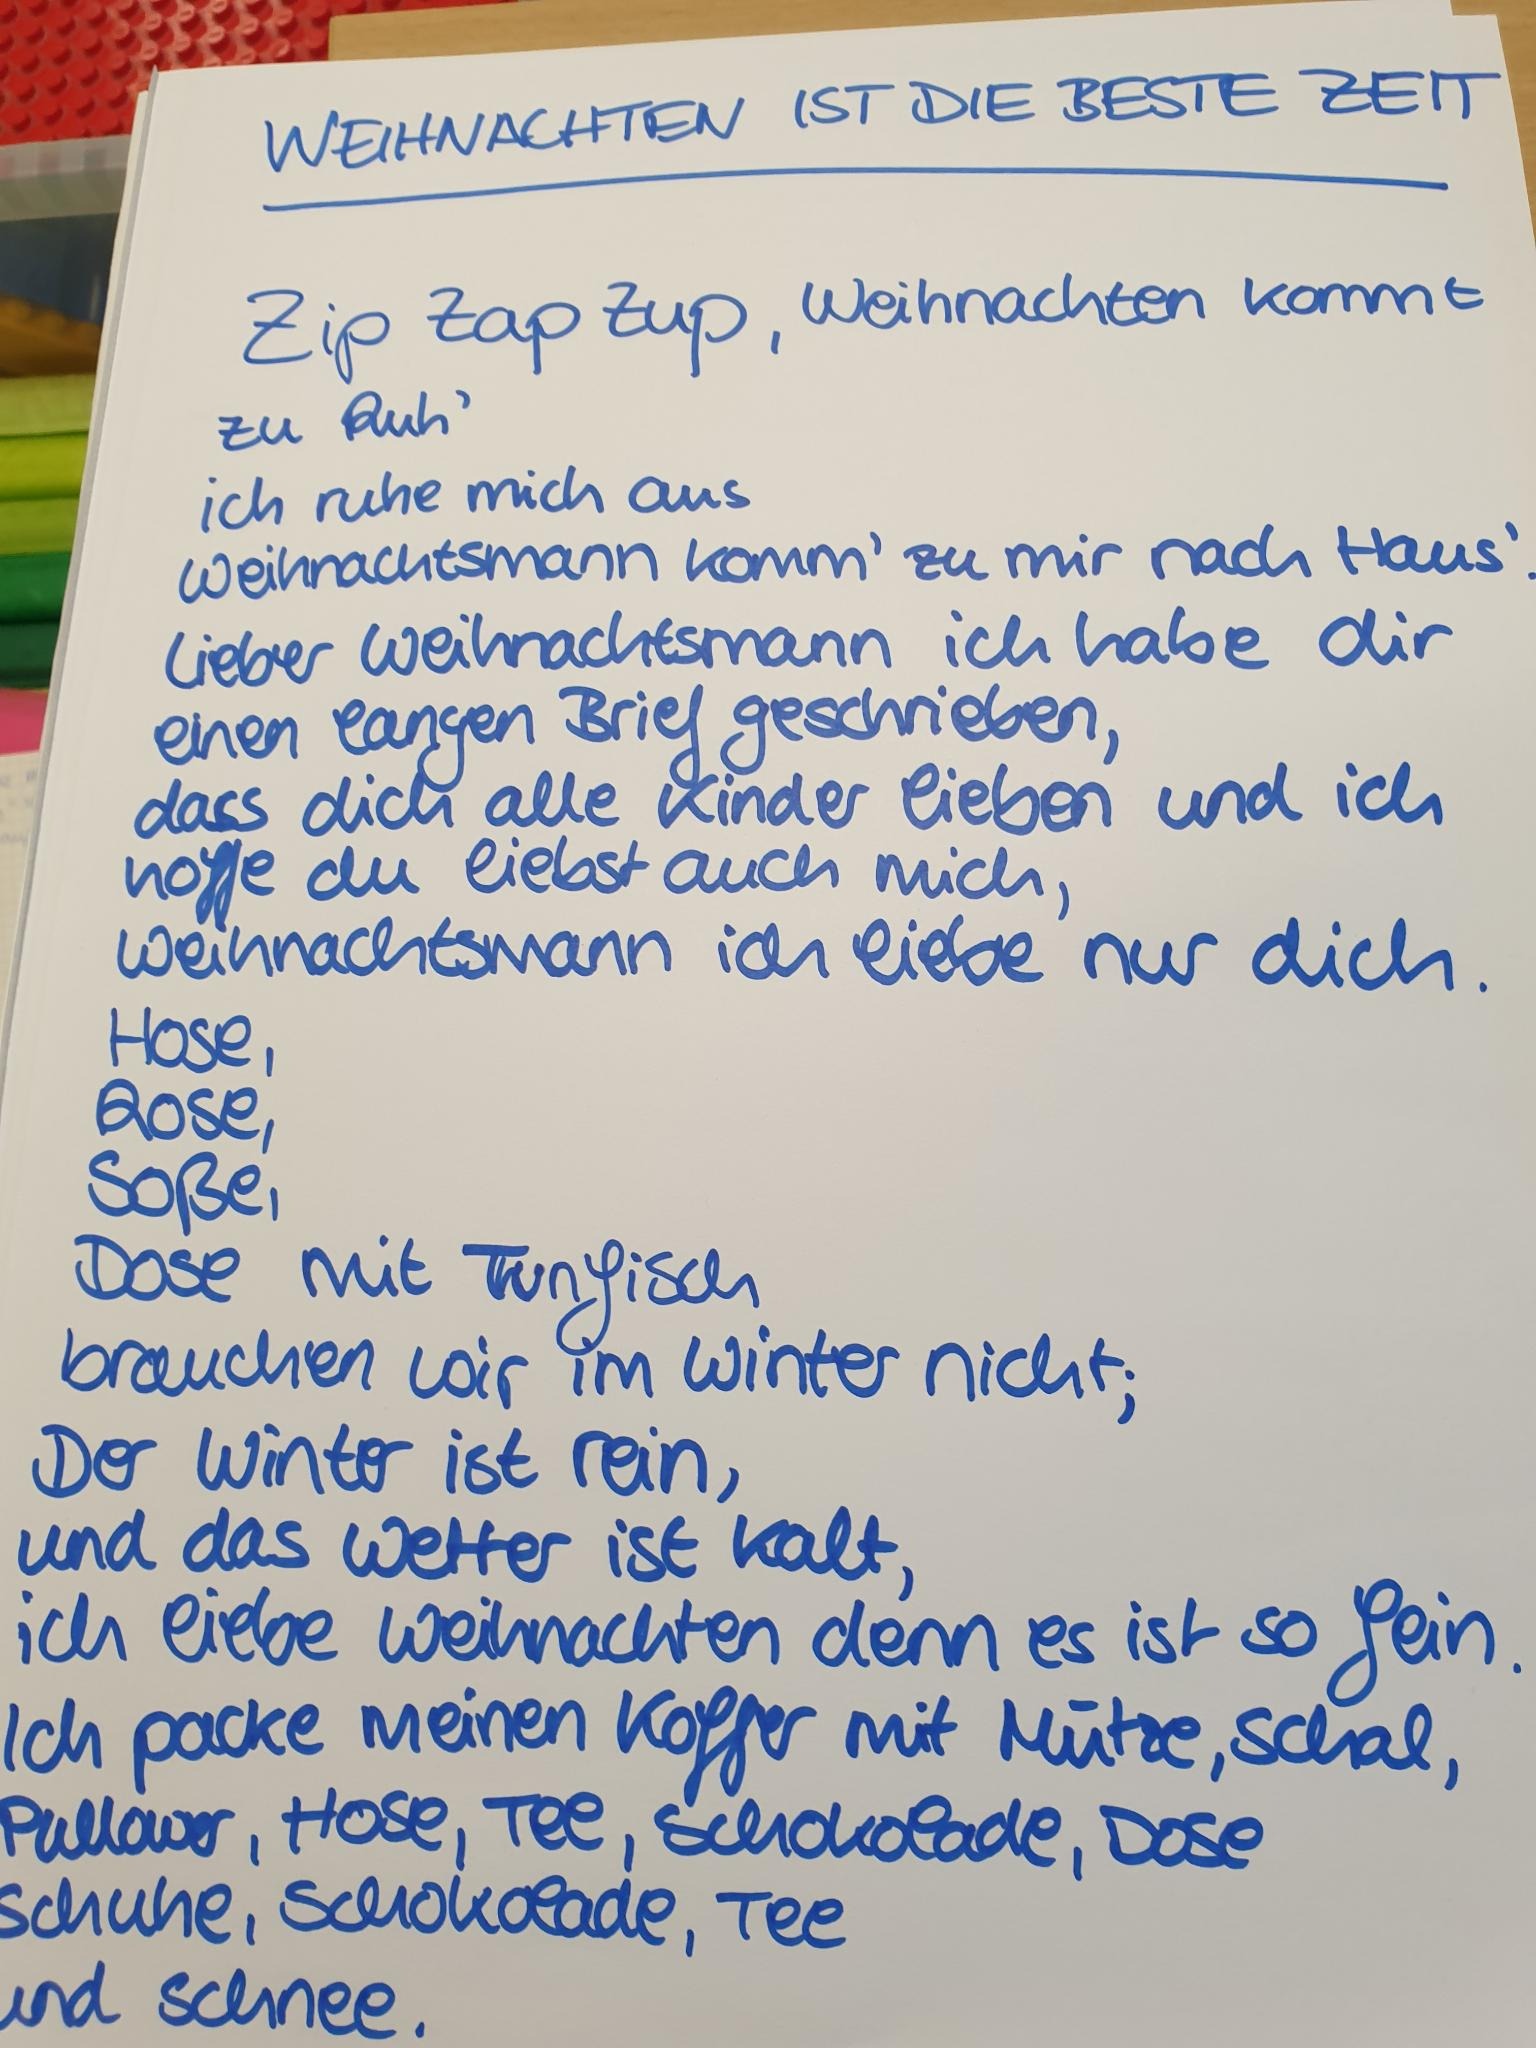 WEIHNACHTEN IST DIE BESTE ZEIT
Zip Zap Zup, Weihnachten kommt
zu Ruh'
ich ruhe mich aus
Weihnachtsmann komm' zu mir nach Haus'.
Lieber Weihnachtsmann ich habe dir
einen langen Brief geschrieben,
dass dich alle Kinder lieben und ich
hoffe du liebst auch mich,
Weihnachtsmann ich liebe nur dich.
Hose,
Rose,
Soße,
Dose mit Tunfisch
brauchen wir im Winter nicht;
Der Winter ist rein,
und das Wetter ist kalt,
ich liebe Weihnachten denn es ist so fein.
Ich packe meinen Koffer mit Mütze, Schal,
Pullover, Hose, Tee, Schokolade, Dose
Schuhe, Schokolade, Tee
und Schnee.